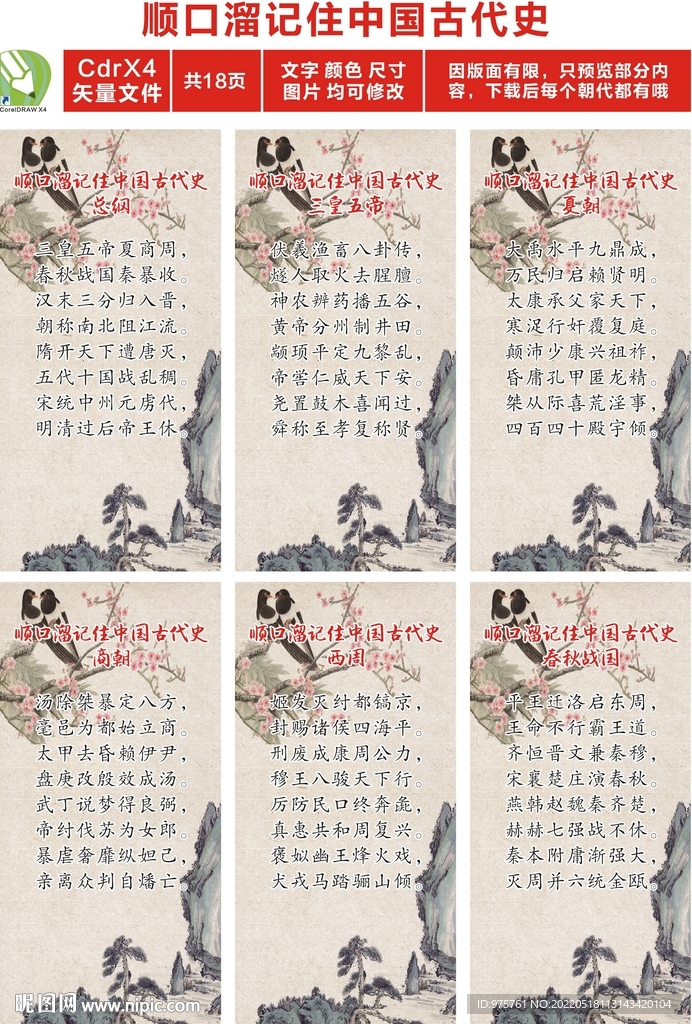 顺口溜记住中国古代史
CorelDRAW X4
CdrX4
矢量文件
共18页
文字 颜色 尺寸
图片 均可修改
因版面有限，只预览部分内
容，下载后每个朝代都有哦
顺口溜记住中国古代史
总纲
三皇五帝夏商周，
春秋战国秦暴收。
汉末三分归入晋，
朝称南北阻江流。
隋开天下遭唐灭，
五代十国战乱稠。
宋统中州元虏代，
明清过后帝王休。
顺口溜记住中国古代史
三皇五帝
伏羲渔畜八卦传，
燧人取火去腥膻。
神农辨药播五谷，
黄帝分州制井田。
颛顼平定九黎乱，
帝喾仁威天下安。
尧置鼓木喜闻过，
舜称至孝复称贤。
顺口溜记住中国古代史
夏朝
大禹水平九鼎成，
万民归启赖贤明。
太康承父家天下，
寒浞行奸覆复庭。
颠沛少康兴祖祚，
昏庸孔甲匿龙精。
桀从际喜荒淫事，
四百四十殿宇倾。
顺口溜记住中国古代史
商朝
汤除桀暴定八方，
亳邑为都始立商。
太甲去昏赖伊尹，
盘庚改殷效成汤。
武丁说梦得良弼，
帝纣伐苏为女郎。
暴虐奢靡纵妲己，
亲离众判自燔亡。
顺口溜记住中国古代史
西周
姬发灭纣都镐京，
封赐诸侯四海平。
刑废成康周公力，
穆王八骏天下行。
厉防民口终奔彘，
真惠共和周复兴。
褒姒幽王烽火戏，
犬戎马踏骊山倾。
顺口溜记住中国古代史
春秋战国
平王迁洛启东周，
王命不行霸王道。
齐恒晋文兼秦穆，
宋襄楚庄演春秋。
燕韩赵魏秦齐楚，
赫赫七强战不休。
秦本附庸渐强大，
灭周并六统金瓯。
昵图网 www.nipic.com
ID:975761 NO:20220518113143420104